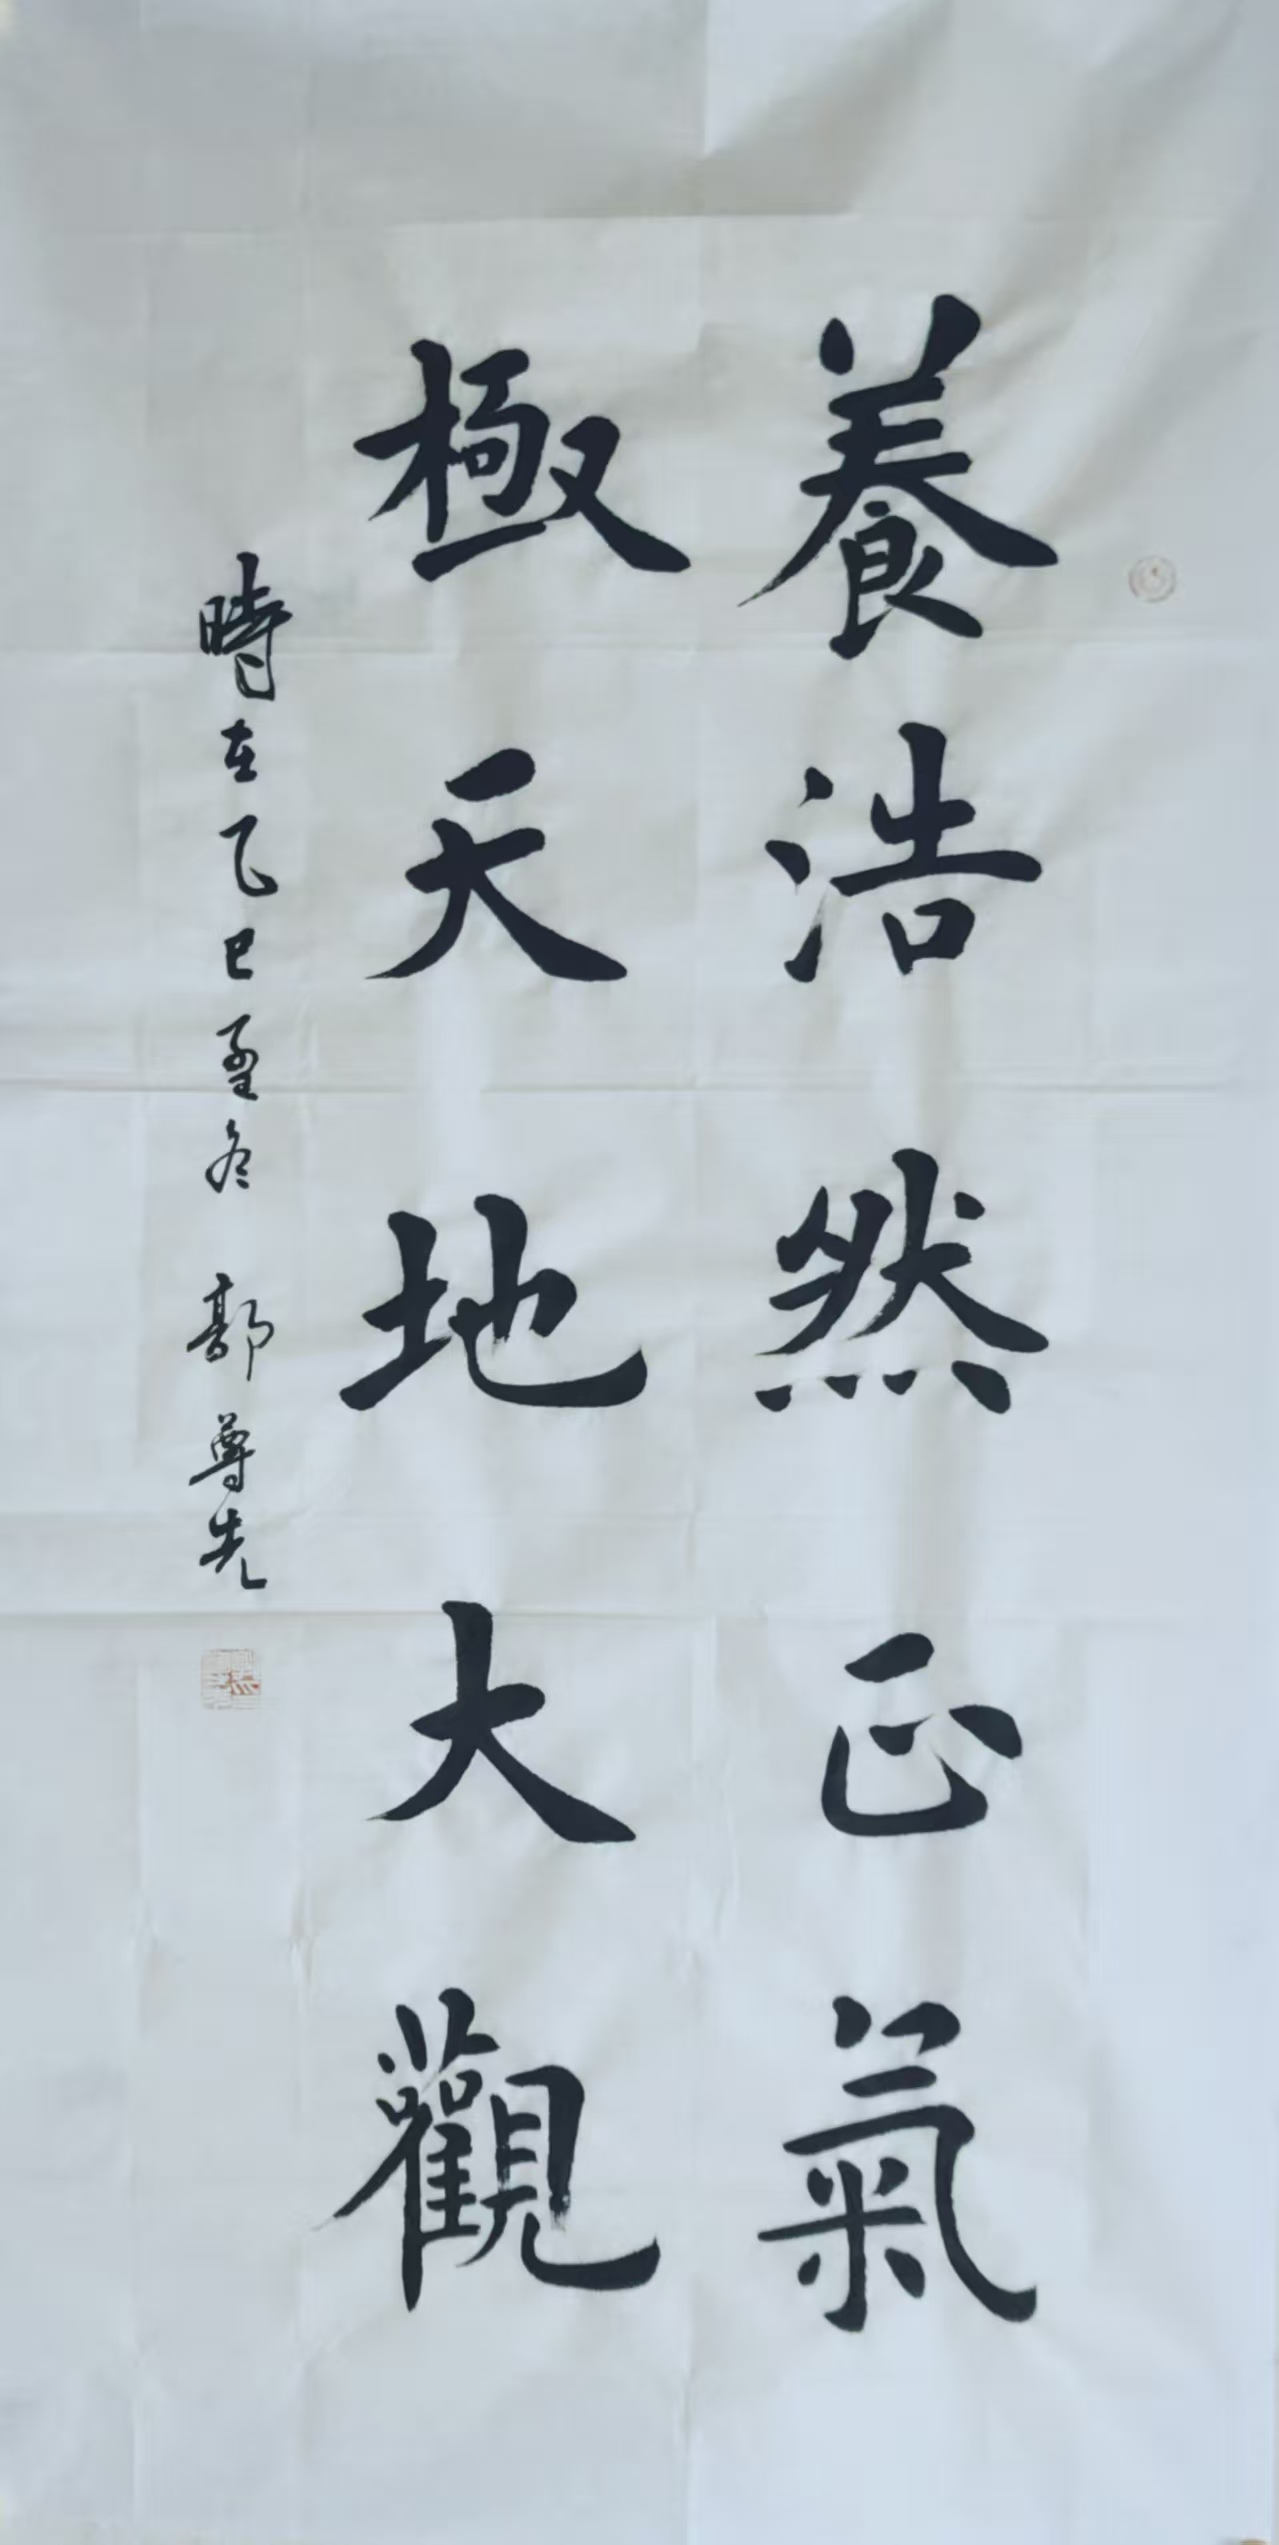 養浩然正氣
極天地大觀
時在乙巳孟冬 郭尊先